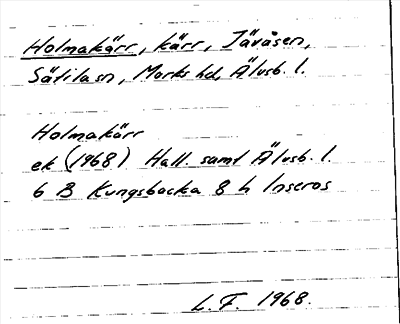 Holmakärr, kärr, Jävåsen,
Sätila sn, Marks hd, Älvsb. l.
Holmakärr
ek (1968) Hall. samt Älvsb. l.
6 B Kungsbacka 8 h Inseros
L. F. 1968.